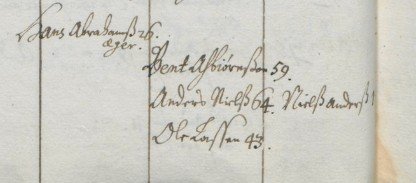 Hans Abrahamß 26.
æger.
Bent Asbiørnßøn 59.
Anders Nielß 64. Nielß Anderß 1
Ole Lassen 43.